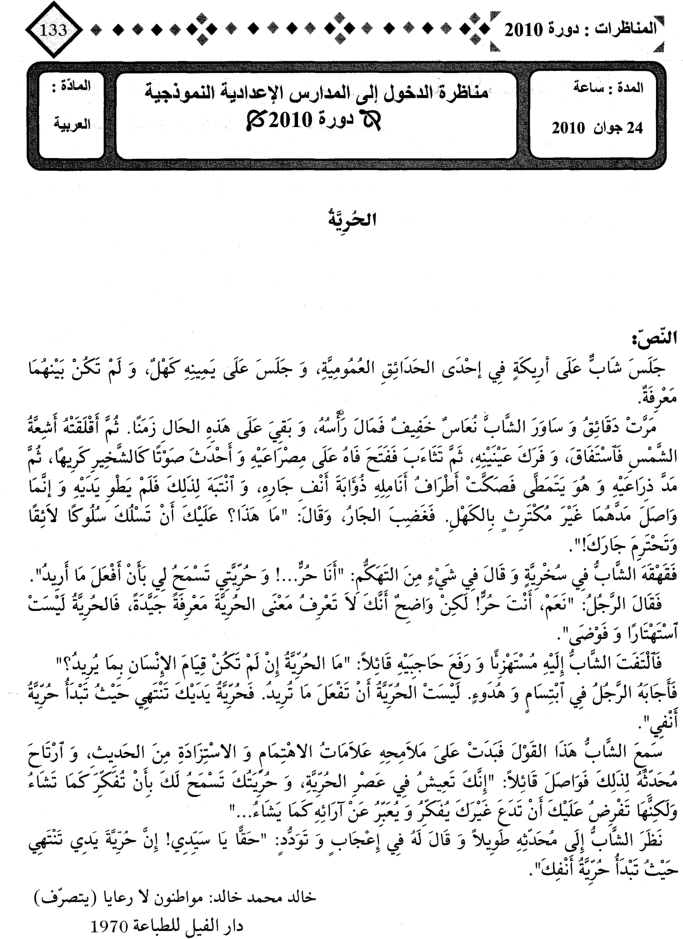 المناظرات : دورة 2010
133
المدة : ساعة
24 جوان 2010
مناظرة الدخول إلى المدارس الإعدادية النموذجية
دورة 2010
المادّة :
العربية
الحُرِيَّةُ
النّصّ:
جَلَسَ شَابٌّ عَلَى أرِيكَةٍ فِي إحْدَى الحَدَائِقِ العُمُومِيَّةِ، وَ جَلَسَ عَلَى يَمِينِهِ كَهْلٌ، وَ لَمْ تَكُنْ بَيْنَهُمَا
مَعْرِفَةٌ.
مَرَّتْ دَقَائِقُ وَ سَاوَرَ الشَّابَّ نُعَاسٌ خَفِيفٌ فَمَالَ رَأْسُهُ، وَ بَقِيَ عَلَى هَذِهِ الحَالِ زَمَنًا. ثُمَّ أَقْلَقَتْهُ أَشِعَّةُ
الشَّمْسِ فَٱسْتَفَاقَ، وَ فَرَكَ عَيْنَيْهِ، ثُمَّ تَثَاءَبَ فَفَتَحَ فَاهُ عَلَى مِصْرَاعَيْهِ وَ أَحْدَثَ صَوْتًا كَالشَّخِيرِ كَرِيهًا، ثُمَّ
مَدَّ ذِرَاعَيْهِ وَ هُوَ يَتَمَطَّى فَصَكَّتْ أَطْرَافُ أَنَامِلِهِ ذُؤَابَةَ أَنْفِ جَارِهِ، وَ ٱنْتَبَهَ لِذَلِكَ فَلَمْ يَطْوِ يَدَيْهِ وَ إنَّمَا
وَاصَلَ مَدَّهُمَا غَيْرَ مُكْتَرِثٍ بِالكَهْلِ. فَغَضِبَ الجَارُ، وَقَالَ: "مَا هَذَا؟ عَلَيْكَ أَنْ تَسْلُكَ سُلُوكًا لاَئِقًا
وَتَحْتَرِمَ جَارَكَ!".
فَقَهْقَهَ الشَّابُّ فِي سُخْرِيَّةٍ وَ قَالَ فِي شَيْءٍ مِنَ التَهَكُّمِ: "أَنَا حُرٌّ...! وَ حُرِّيَّتِي تَسْمَحُ لِي بِأَنْ أَفْعَلَ مَا أُرِيدُ".
فَقَالَ الرَّجُلُ: "نَعَمْ، أَنْتَ حُرٌّ! لَكِنْ وَاضِحٌ أَنَّكَ لاَ تَعْرِفُ مَعْنَى الحُرِيَّةِ مَعْرِفَةً جَيِّدَةً، فَالحُرِيَّةُ لَيْسَتْ
ٱسْتِهْتَارًا وَ فَوْضَى".
فَٱلْتَفَتَ الشَّابُّ إلَيْهِ مُسْتَهْزِئًا وَ رَفَعَ حَاجِبَيْهِ قَائِلاً: "مَا الحُرِيَّةُ إنْ لَمْ تَكُنْ قِيَامَ الإنْسَانِ بِمَا يُرِيدُ؟"
فَأَجَابَهُ الرَّجُلُ فِي ٱبْتِسَامٍ وَ هُدُوءٍ. لَيْسَتْ الحُرِيَّةُ أَنْ تَفْعَلَ مَا تُرِيدُ. فَحُرِيَّةُ يَدَيْكَ تَنْتَهِي حَيْثُ تَبْدَأُ حُرِيَّةُ
أَنْفِي".
سَمِعَ الشَّابُّ هَذَا القَوْلَ فَبَدَتْ عَلَى مَلاَمِحِهِ عَلاَمَاتُ الاهْتِمَامِ وَ الاسْتِزَادَةِ مِنَ الحَدِيثِ، وَ ٱرْتَاحَ
مُحَدِّثُهُ لِذَلِكَ فَوَاصَلَ قَائِلاً: "إنَّكَ تَعِيشُ فِي عَصْرِ الحُرِيَّةِ، وَ حُرِّيَّتُكَ تَسْمَحُ لَكَ بِأَنْ تُفَكِّرَ كَمَا تَشَاءُ
وَلَكِنَّهَا تَفْرِضُ عَلَيْكَ أَنْ تَدَعَ غَيْرَكَ يُفَكِّرُ وَ يُعَبِّرُ عَنْ آرَائِهِ كَمَا يَشَاءُ..."
نَظَرَ الشَّابُّ إلَى مُحَدِّثِهِ طَوِيلاً وَ قَالَ لَهُ فِي إعْجَابٍ وَ تَوَدُّدٍ: "حَقًّا يَا سَيِّدِي! إنَّ حُرِيَّةَ يَدِي تَنْتَهِي
حَيْثُ تَبْدَأُ حُرِيَّةُ أَنْفِكَ".
خالد محمد خالد: مواطنون لا رعايا (بتصرّف)
دار الفيل للطباعة 1970